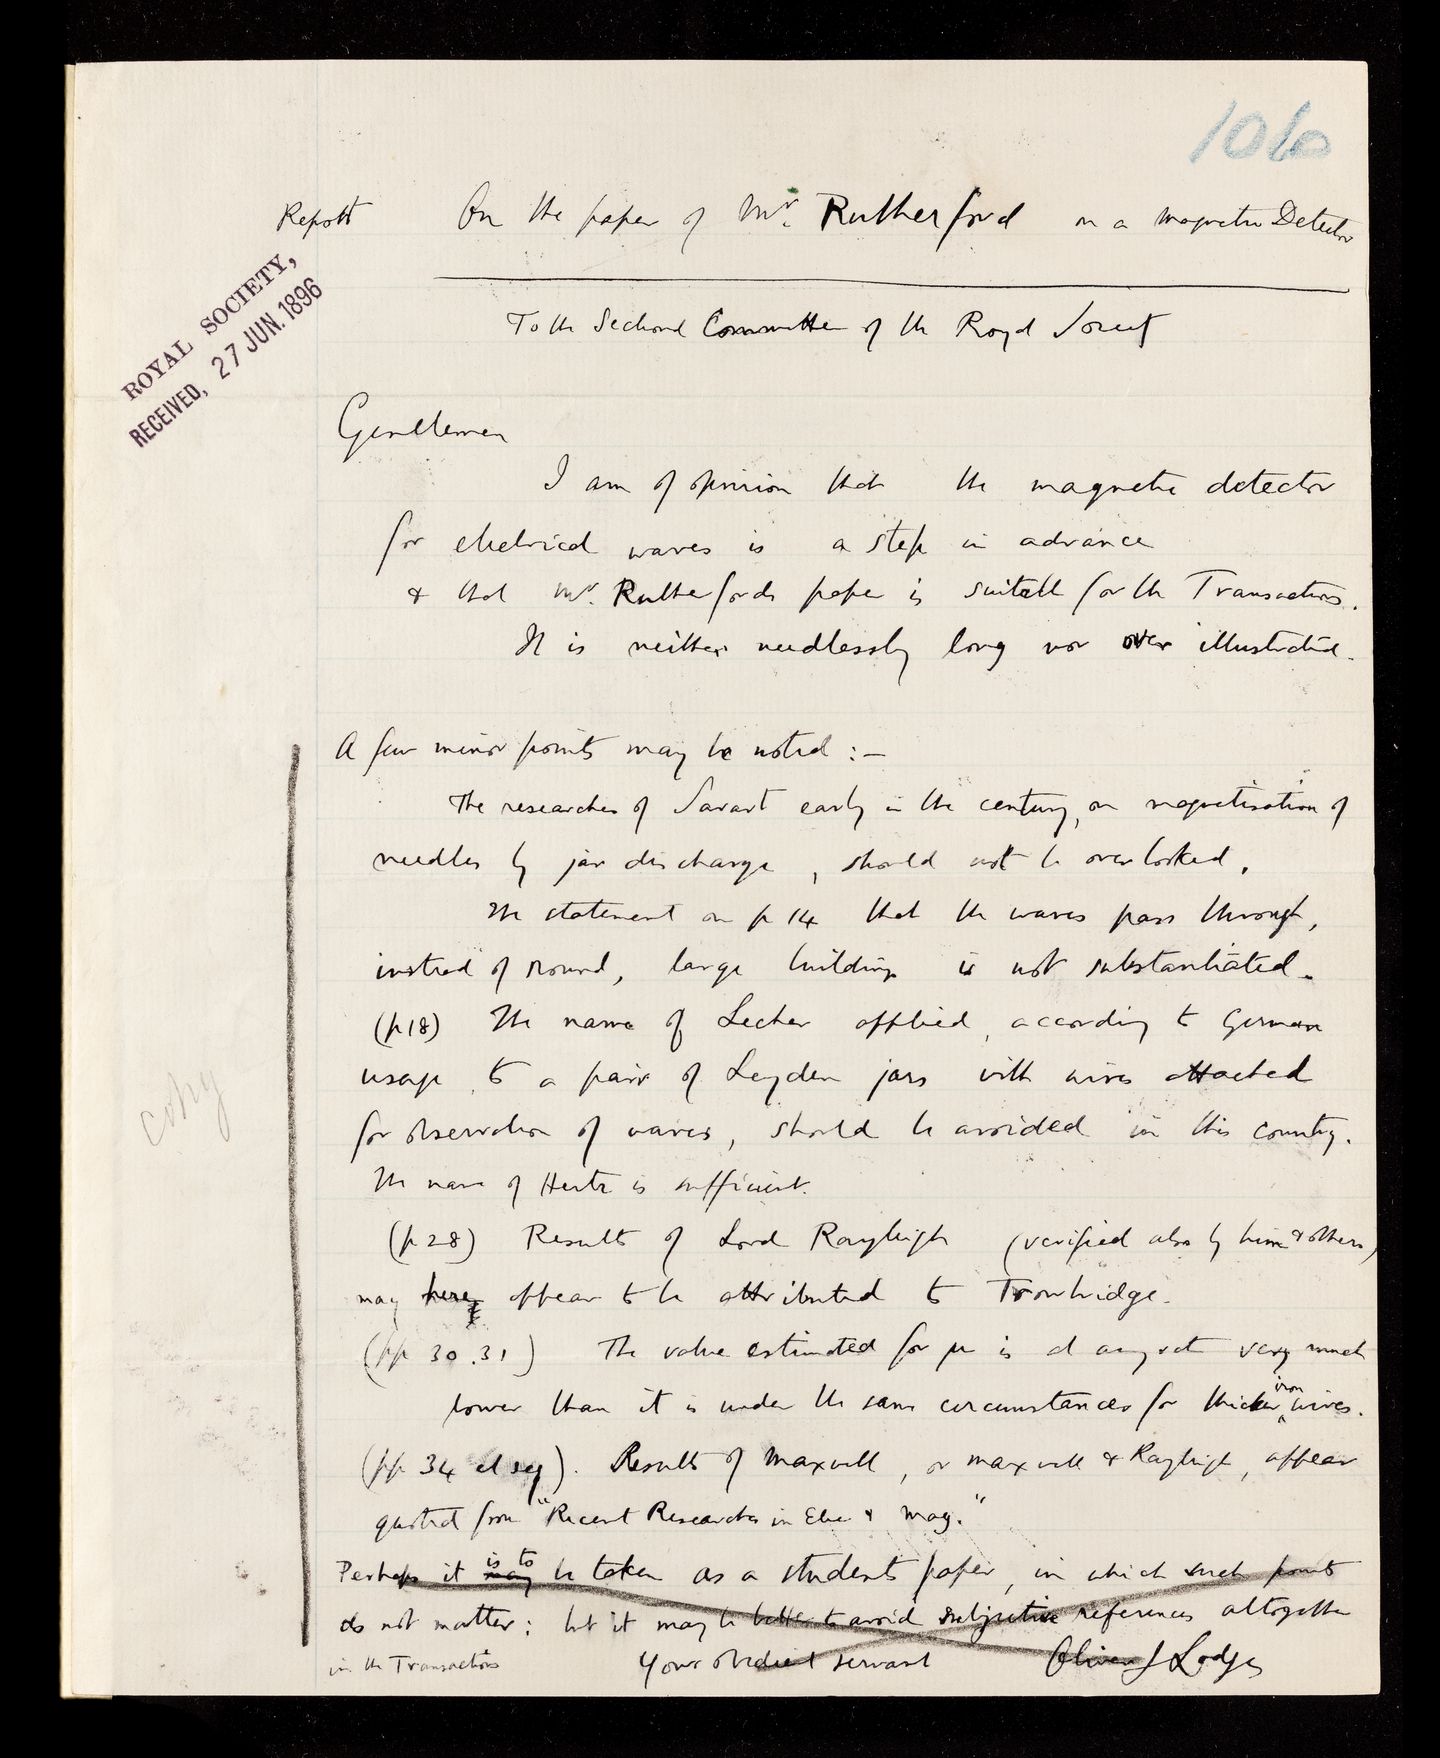 106
Report On the paper of Mr. Rutherford on a Magnetic Detector
ROYAL SOCIETY,
RECEIVED, 27 JUN. 1896
To the Sectional Committee of the Royal Society
Gentlemen
I am of opinion that the magnetic detector
for electrical waves is a step in advance
& that Mr. Rutherfords paper is suitable for the Transactions.
It is neither needlessly long nor over illustrated.
A few minor points may be noted :—
The researches of Savart early in the century, on magnetisation of
needles by jar discharge, should not be overlooked.
The statement on p 14 that the waves pass through,
instead of round, large buildings is not substantiated.
(p 18) The name of Lecher applied, according to German
usage, to a pair of Leyden jars with wires attached
for observation of waves, should be avoided in this country.
The name of Hertz is sufficient.
(p 28) Results of Lord Rayleigh (verified also by him & others)
may here appear to be attributed to Trowbridge.
(pp 30.31) The value estimated for μ is at any rate very much
lower than it is under the same circumstances for thicker iron wires.
(pp 34 et seq). Results of Maxwell, or Maxwell & Rayleigh, appear
quoted from "Recent Researches in Elec & Mag."
copy
Perhaps it may is to be taken as a students paper, in which such points
do not matter; but it may be better to avoid subjective references altogether
in the Transactions
Your obedient servant Oliver J Lodge